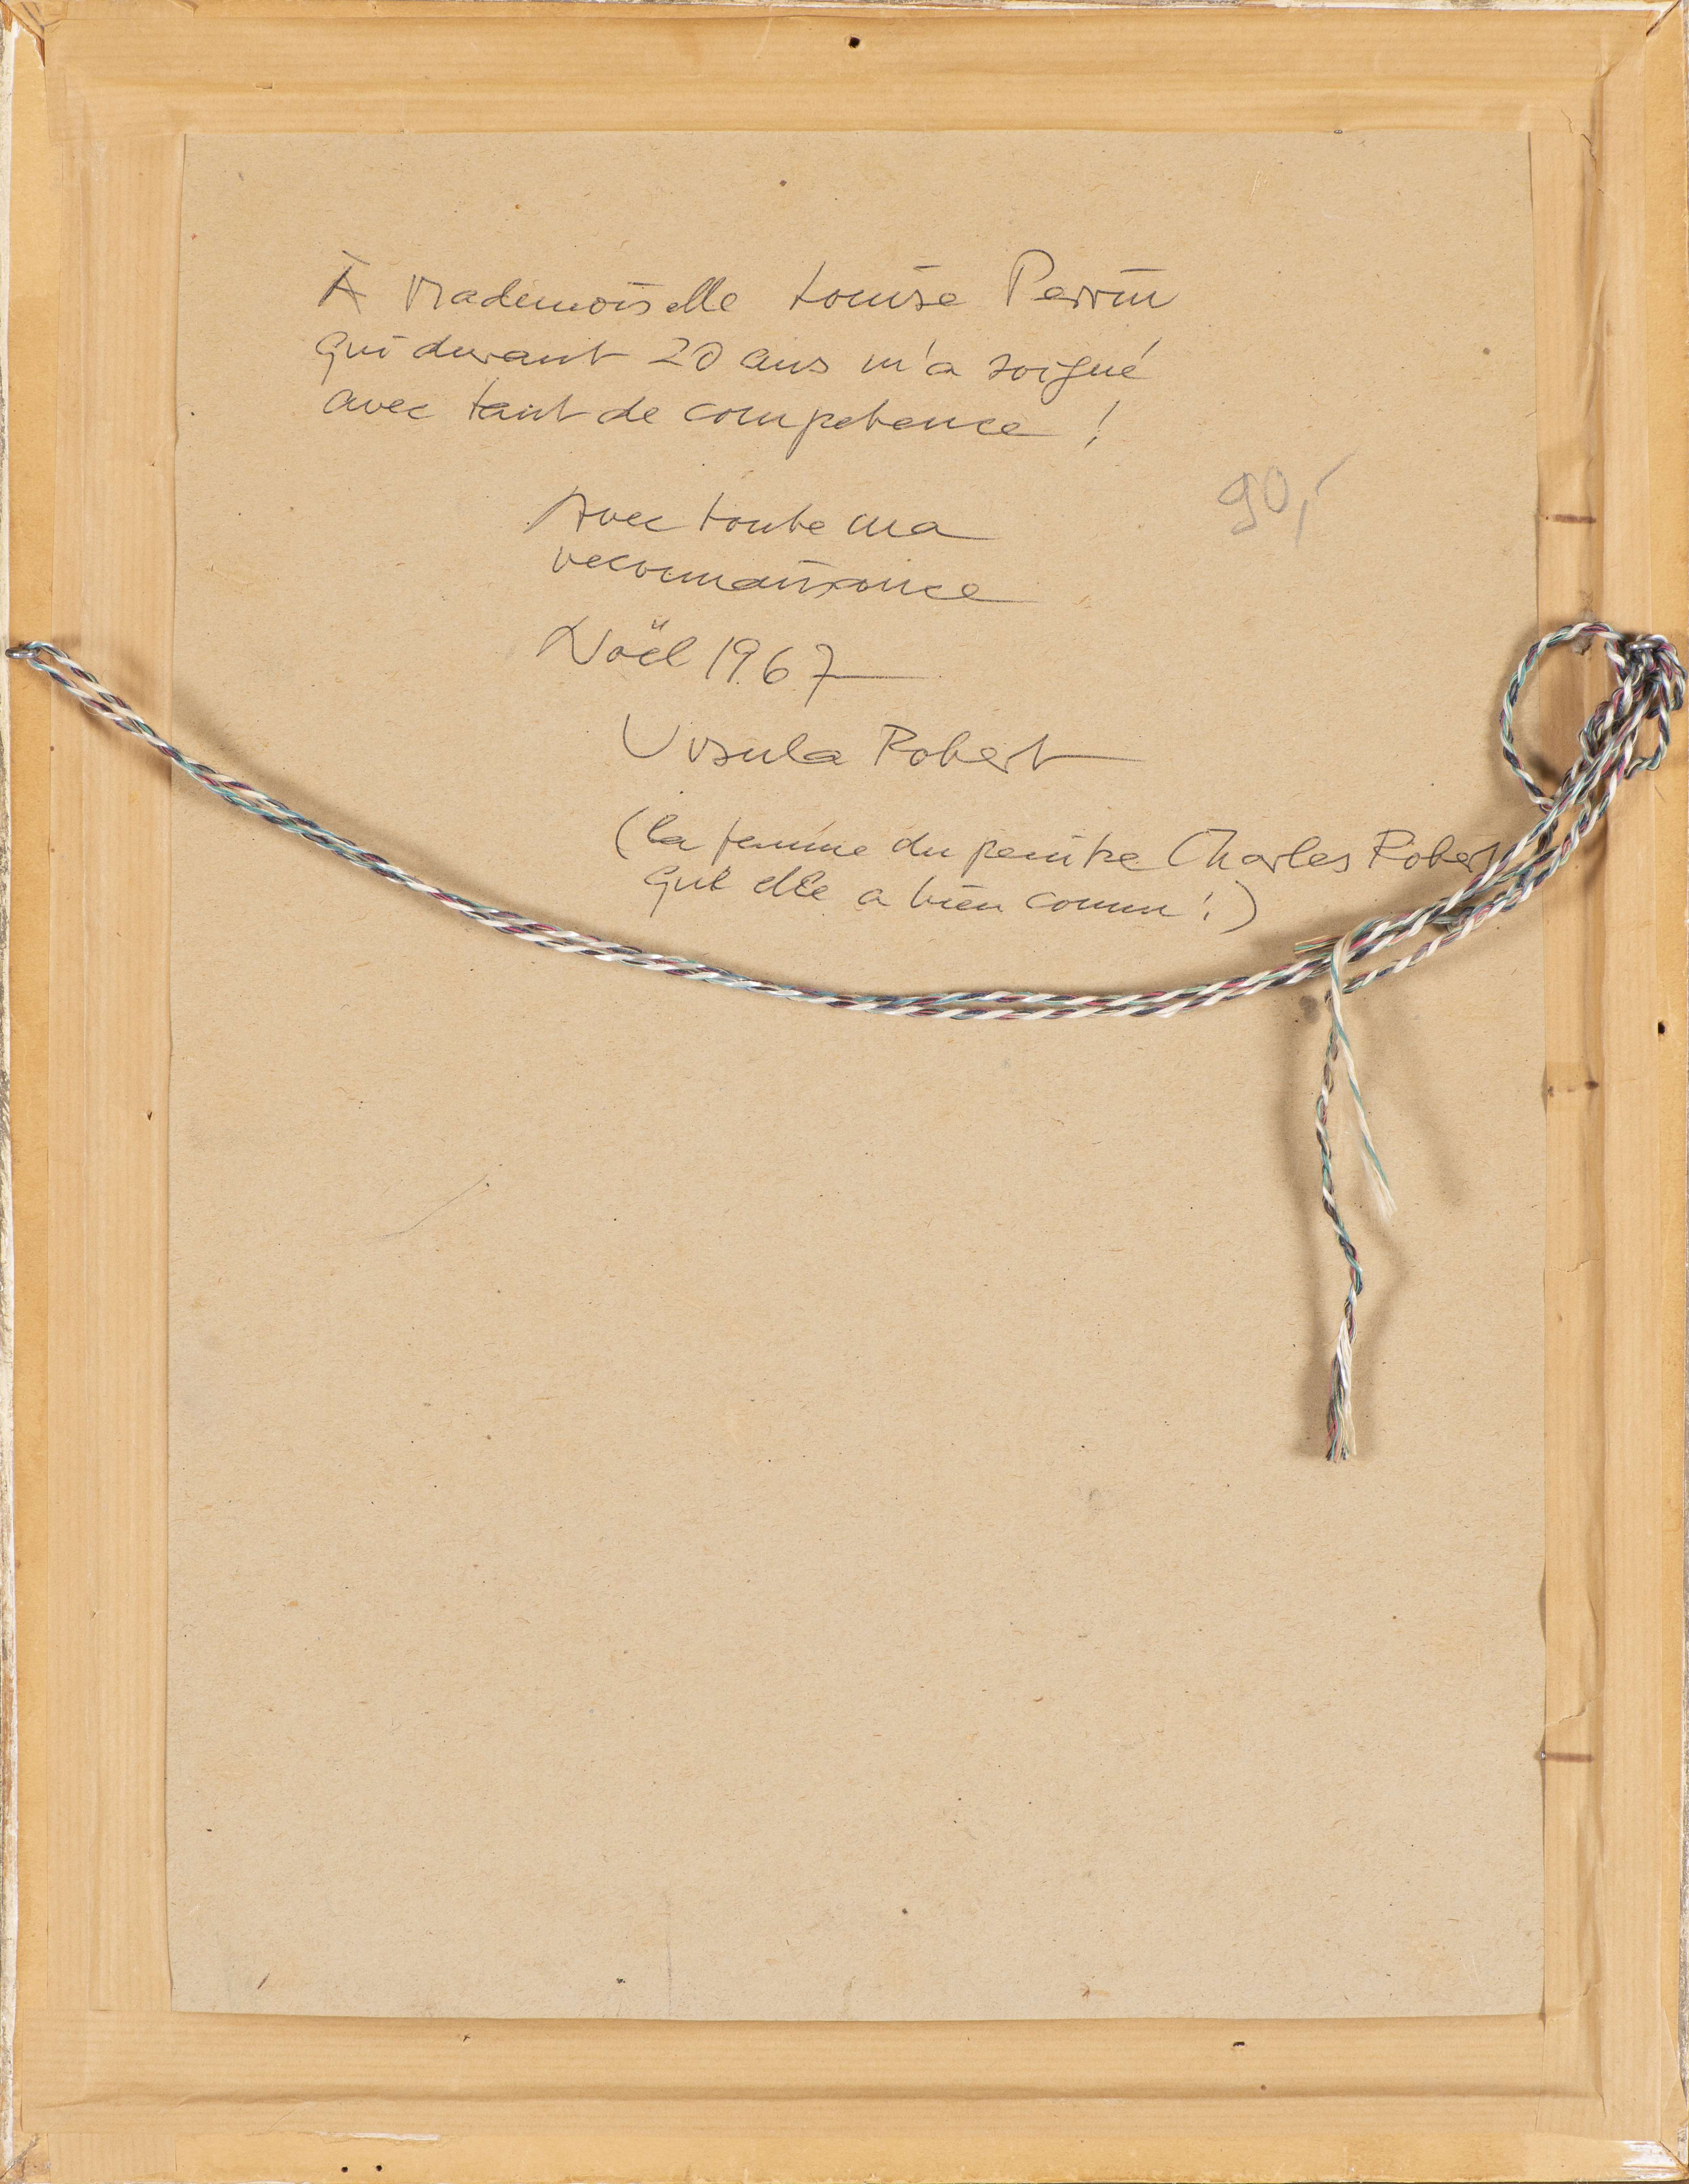 À Mademoiselle Louise Perrin
qui durant 20 ans m'a soigné
avec tant de competence !
90,-
Avec toute ma
reconnaissance
Noël 1967
Ursula Robert
(la femme du peintre Charles Robert
que elle a bien connu !)